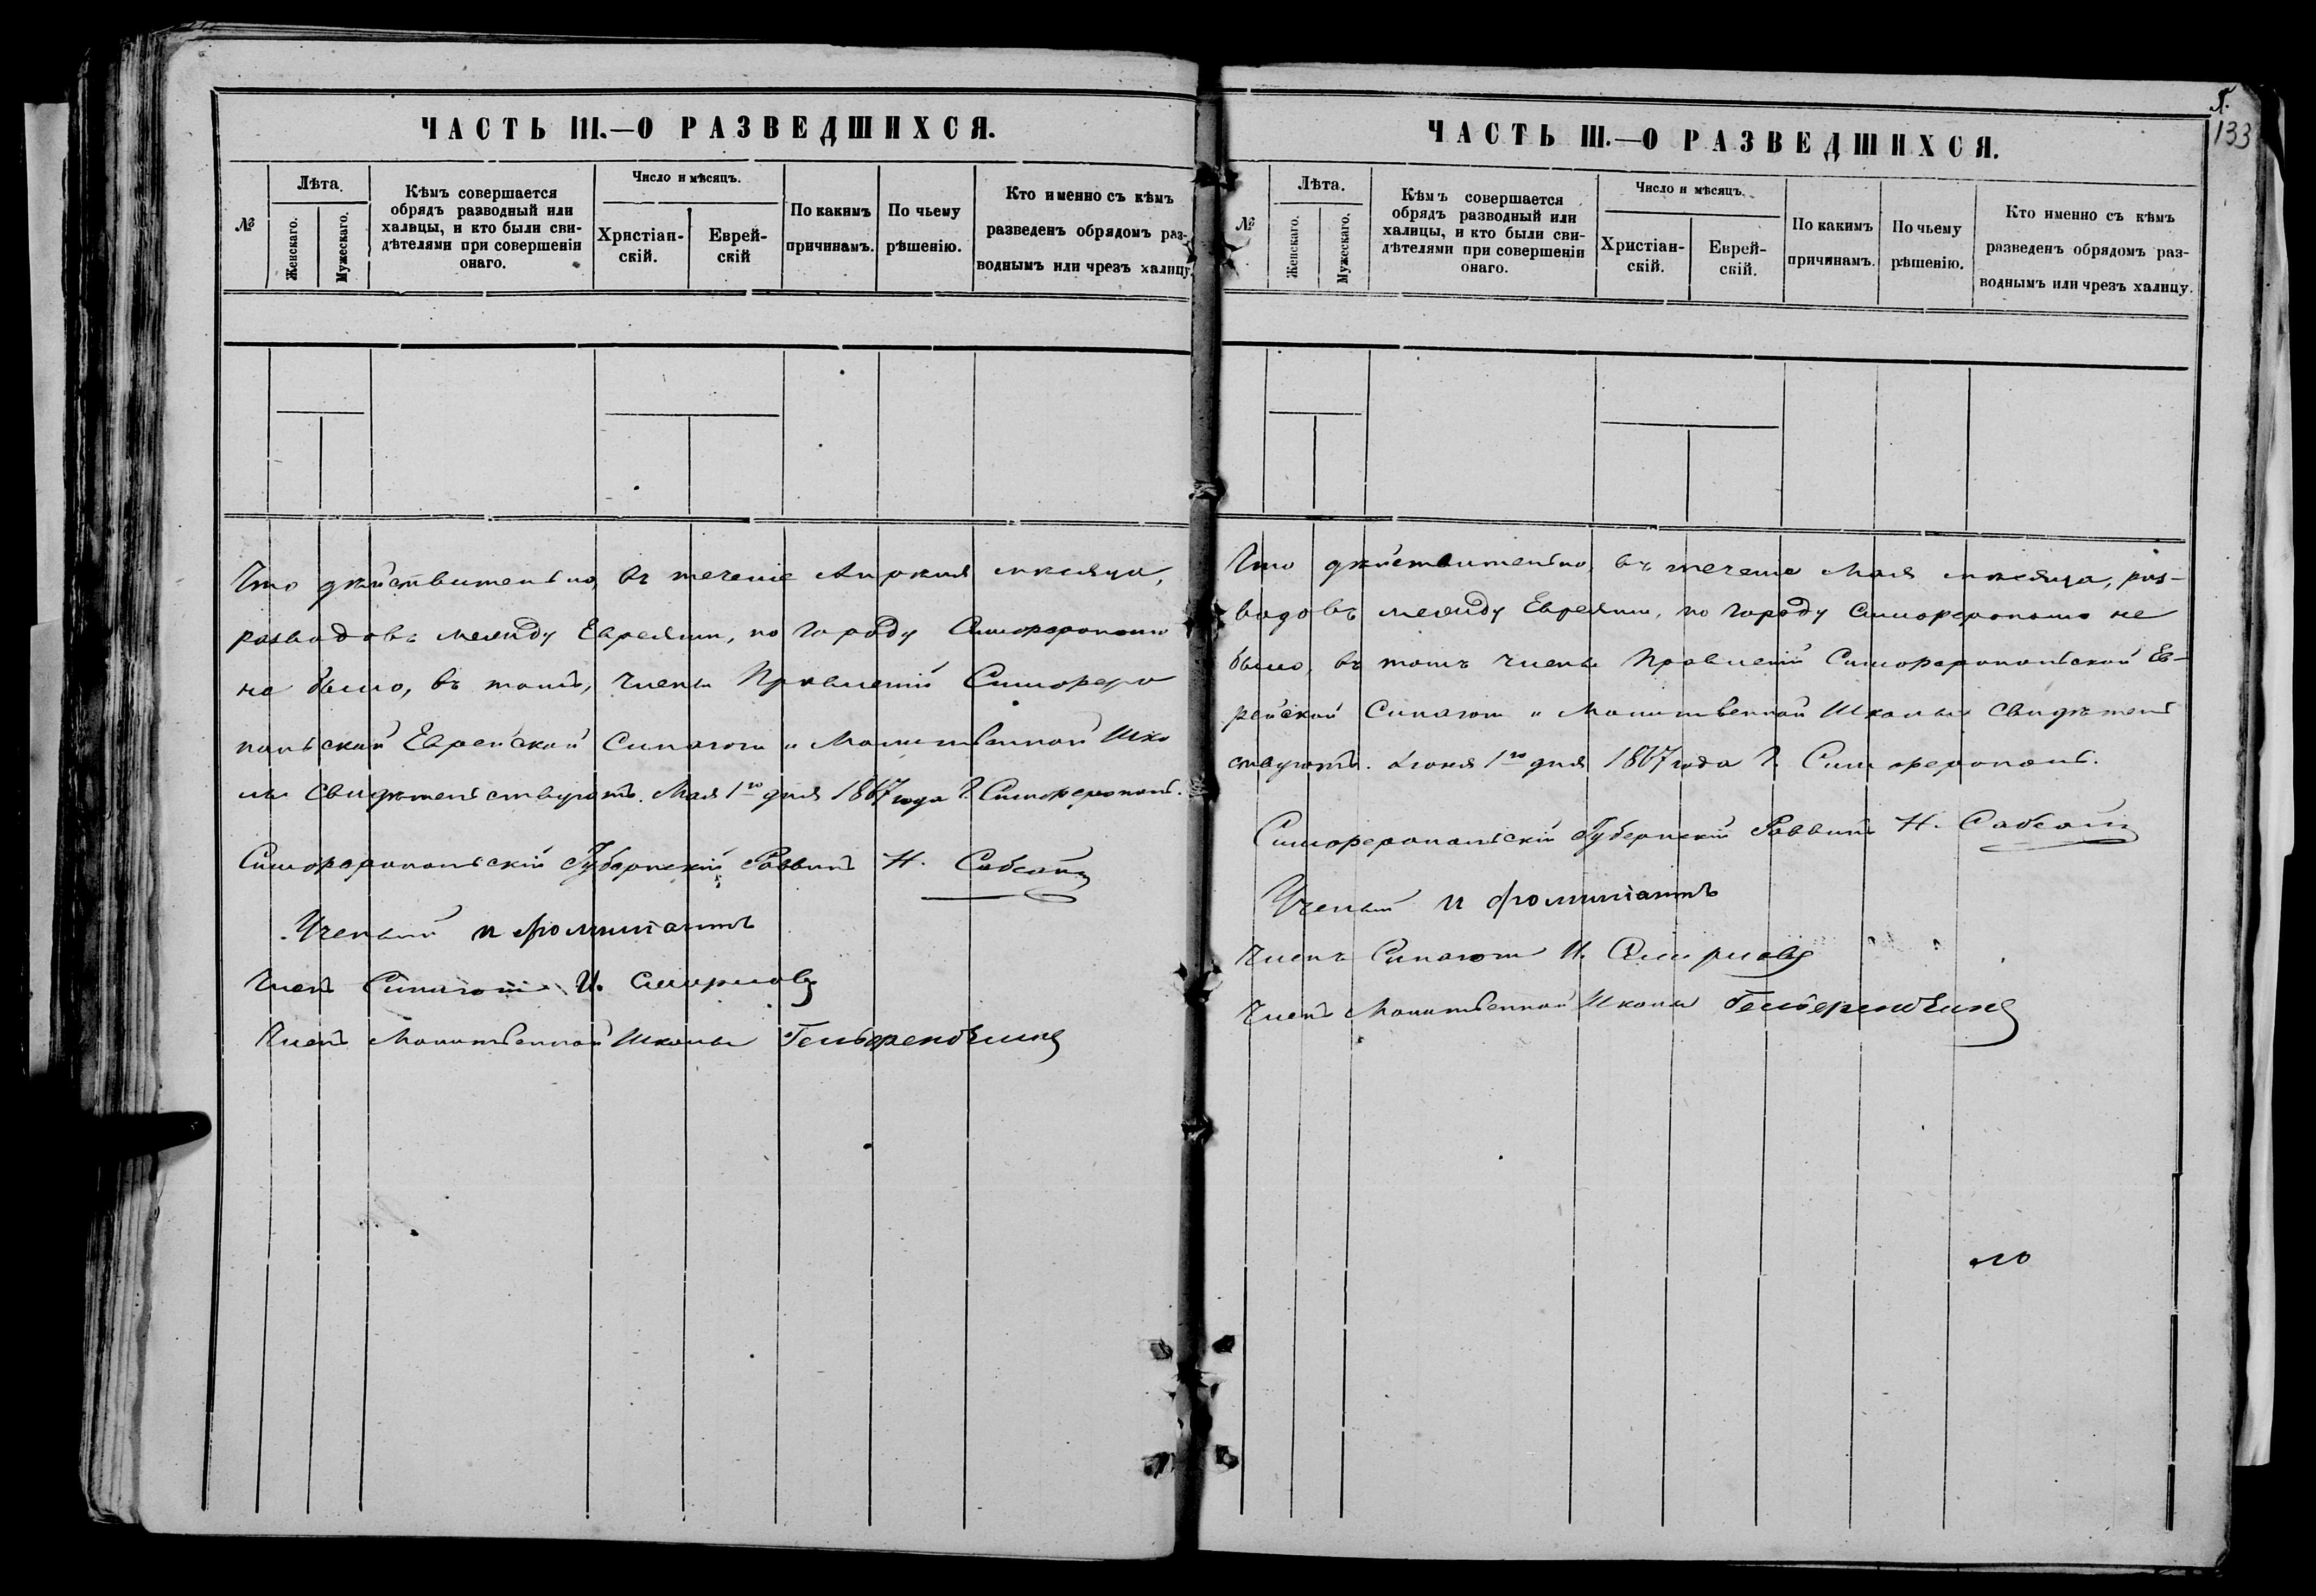 ЧАСТЬ III.—О РАЗВЕДШИХСЯ.
№
Лѣта.
Женскаго.
Мужескаго.
Кѣмъ совершается
обрядъ разводный или
халыцы, и кто были сви-
дѣтелями при совершеніи
онаго.
Число и мѣсяцъ.
Христіан-
скій.
Еврей-
скій
По какимъ
причинамъ.
По чьему
рѣшенію.
Кто именно съ кѣмъ
разведенъ обрядомъ раз-
воднымъ или чрезъ халицу
Что дѣйствительно, въ теченіе Апрѣля мѣсяца,
разводовъ между Евреями, по городу Симферополю
не было, въ томъ, Члены Правленій Симферо
польской Еврейской Синагоги и Молитвенной Шко
лы свидѣтельствуютъ. Мая 1го дня 1867 года Г. Симферополь.
Симферопольскій Губернскій Раввинъ Н.
Ученый
Членъ Синагоги И.
Членъ Молитвенной Школы
5.
133
ЧАСТЬ III.—О РАЗВЕДШИХСЯ.
№
Лѣта.
Женскаго.
Мужескаго.
Кѣмъ совершается
обрядъ разводный или
халицы, и кто были сви-
дѣтелями при совершеніи
онаго.
Число и мѣсяцъ.
Христіан-
скій.
Еврей-
скій.
По какимъ
причинамъ.
По чьему
рѣшенію.
Кто именно съ кѣмъ
разведенъ обрядомъ раз-
воднымъ или чрезъ халицу.
Что дѣйствительно, въ теченіе Мая мѣсяца, раз-
водовъ между Евреями, по городу Симферополю не
было, въ томъ Члены Правленій Симферопольской Ев-
рейской Синагоги и Молитвенной Школы свидѣтель
ствуютъ. Іюня 1го дня 1867 года Г. Симферополь.
Симферопольскій Губернскій Раввинъ Н.
Ученый
Членъ Синагоги И.
Членъ Молитвенной Школы